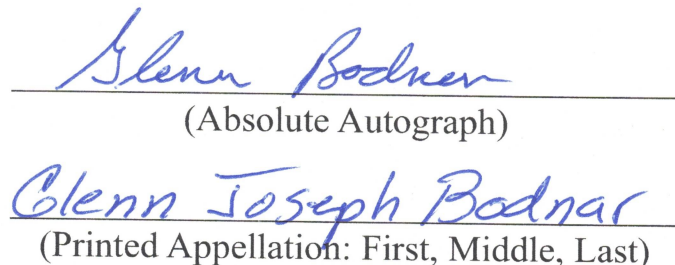 Glenn Bodnar
(Absolute Autograph)
Glenn Joseph Bodnar
(Printed Appellation: First, Middle, Last)